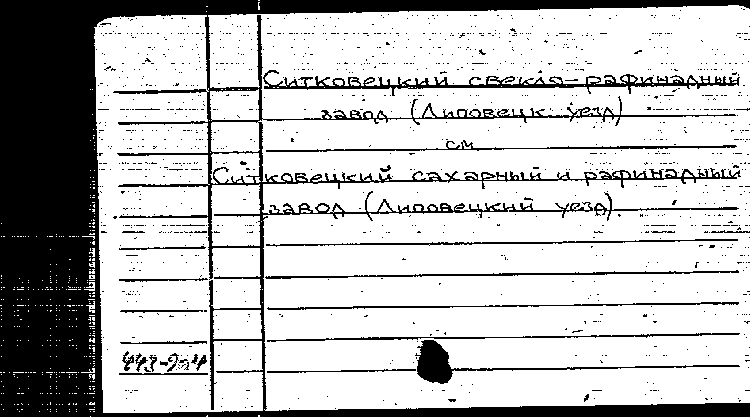 Ситковецкий свекло-рафинадный
завод (Липовецк. уезд)
см.
Ситковецкий сахарный и рафинадный
завод (Липовецкий уезд).